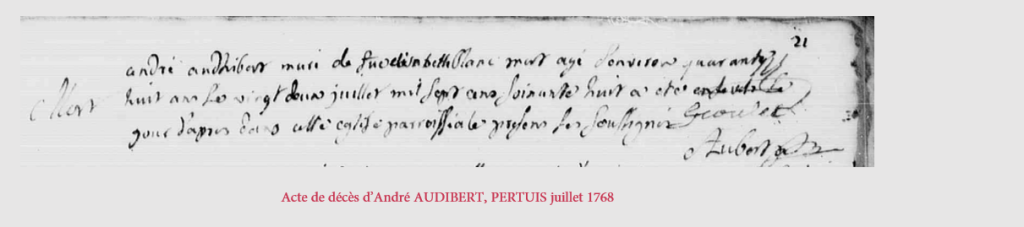 21
Mort
andré audhibert mari de feue elisabeth blanc mort agé d'environ quarante
huit ans le vingt deux juillet mil sept ans soixante huit a été enseveli le
jour d'apres dans cette eglise parroissiale presens les soussignés
Aubert
Acte de décès d'André AUDIBERT, PERTUIS juillet 1768